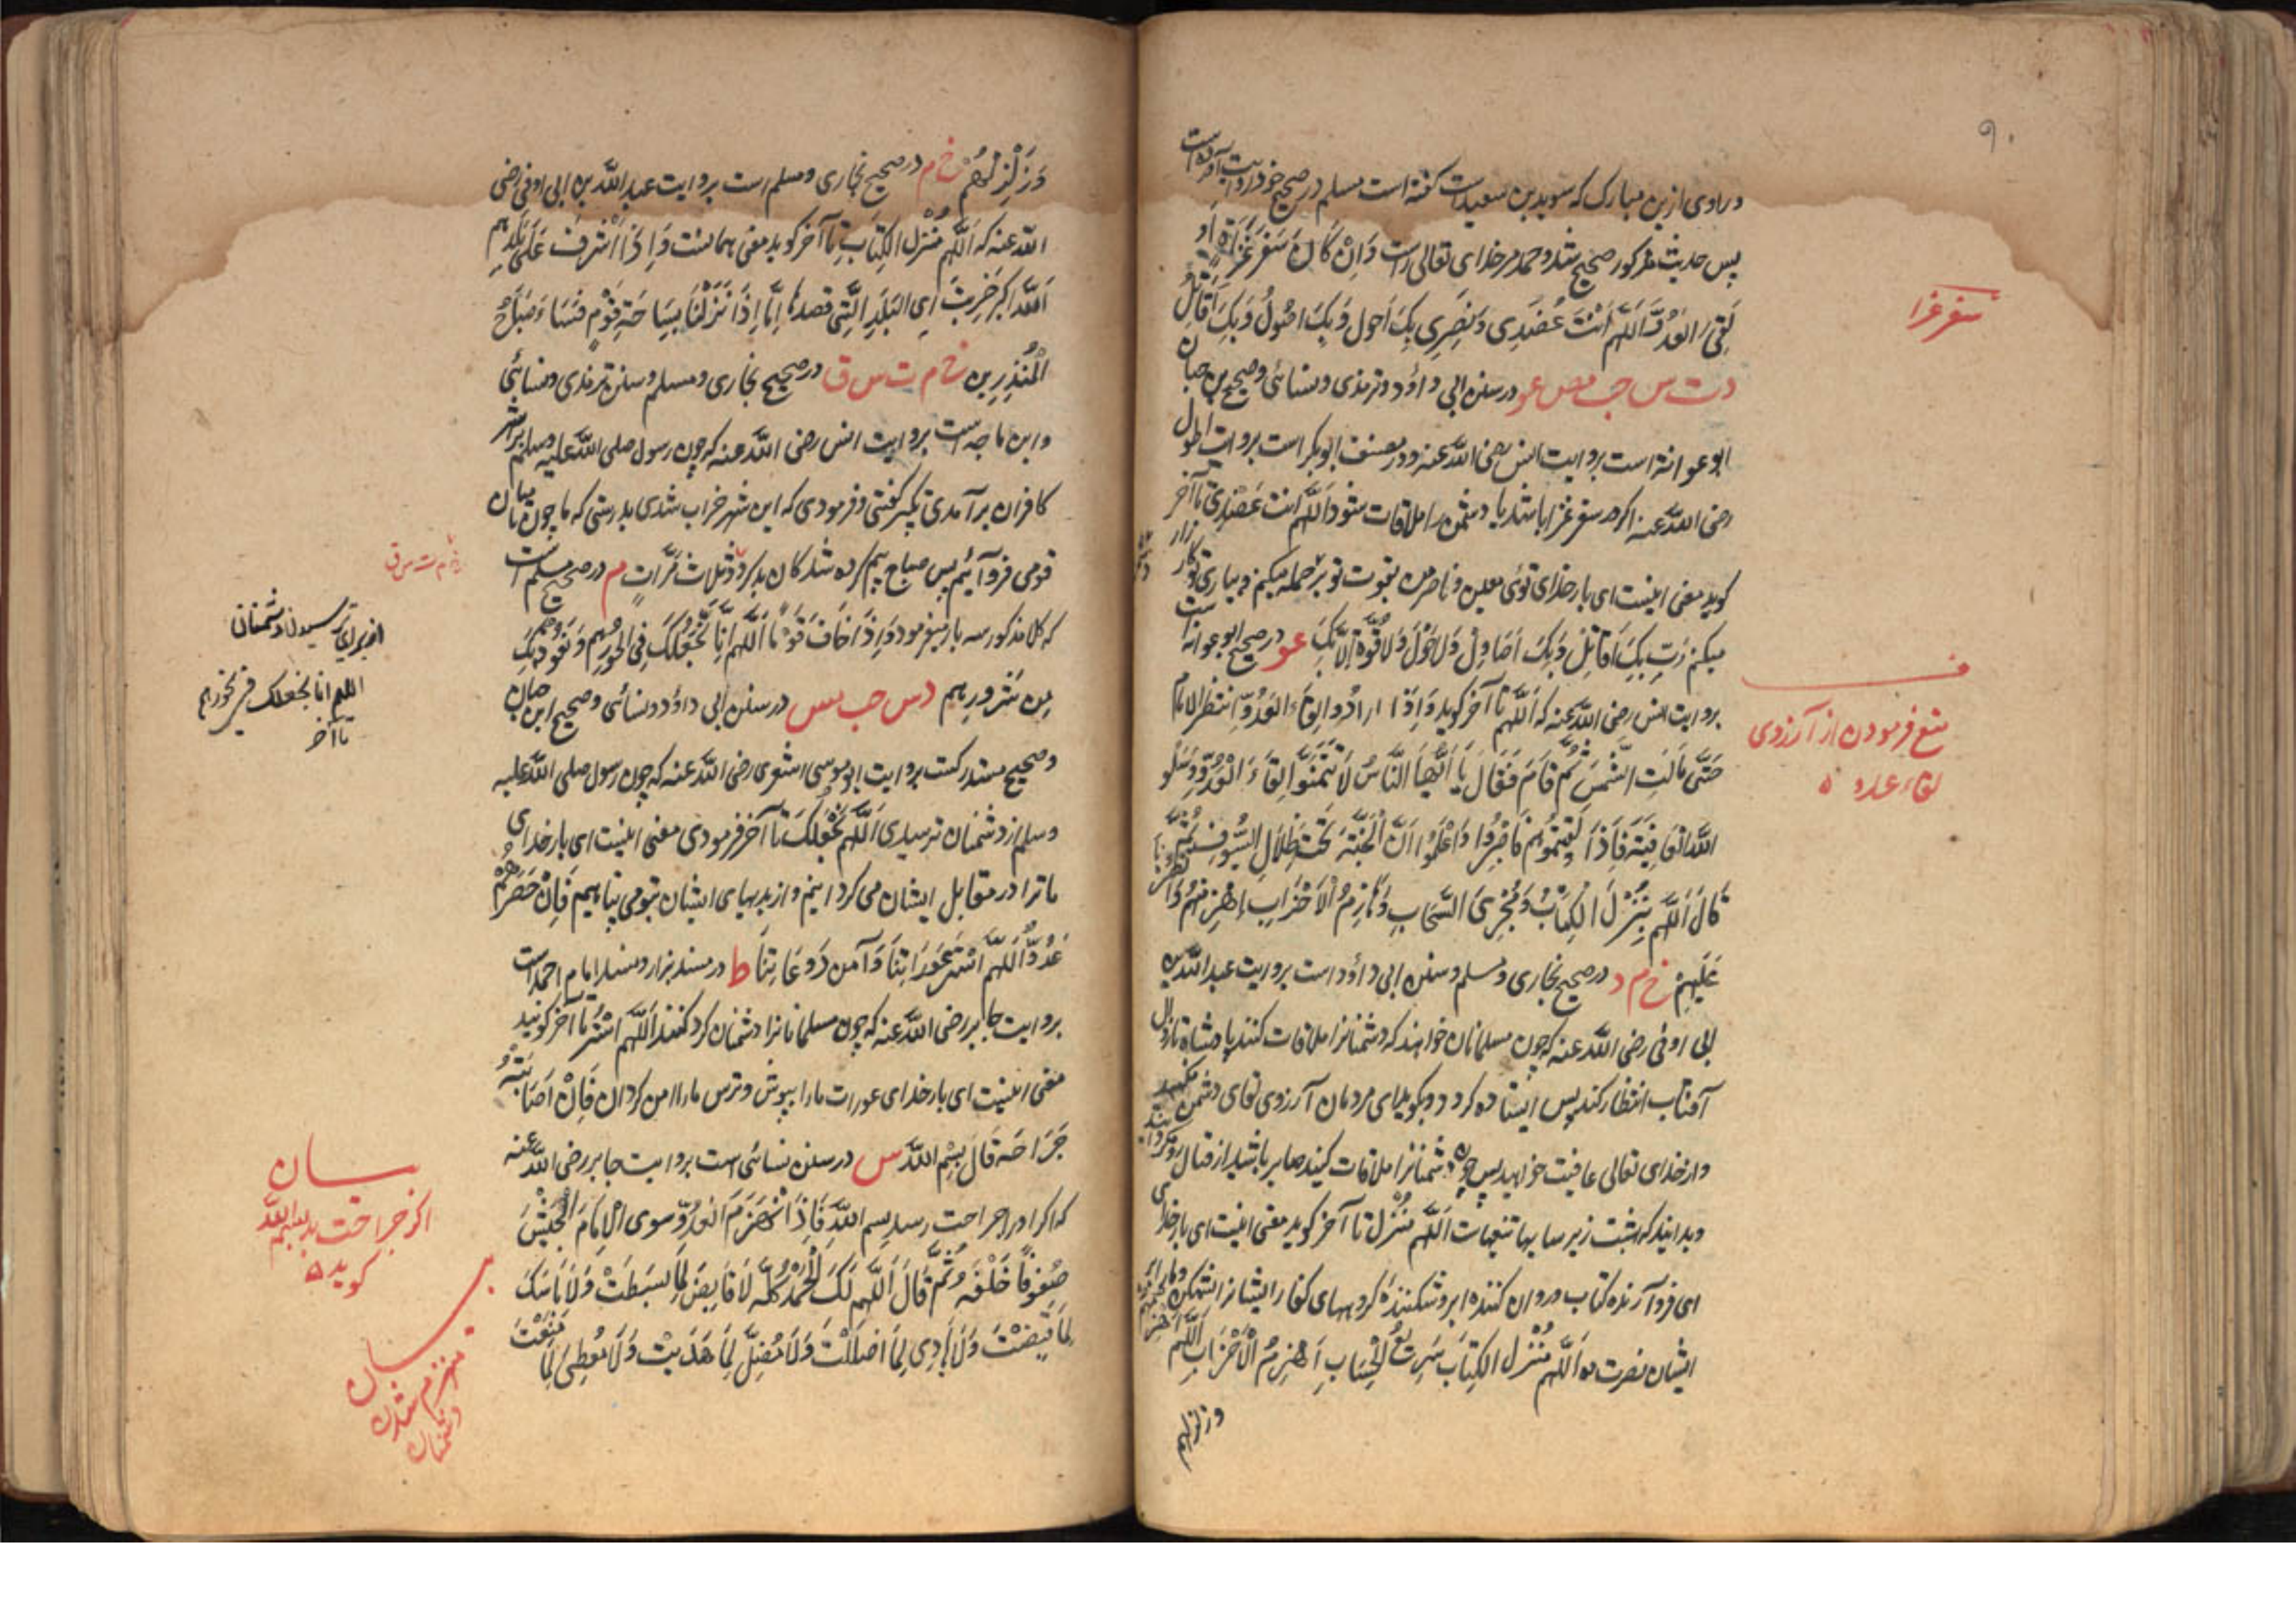 ۹۰
وراوی ازین مبارک که سوید بن سعیدست گفته است مسلم در صحیح خود روایت آورده است
پس حدیث مذکور صحیح شد و حمد مر خدای تعالی راست وَاِنْ کَانَ سَفَرَ غَزَاةٍ اَو
لَقِیَ العَدُوَّ اَللّهم اَنْتَ عَضُدِی وَنَصِیرِی بِکَ اَحول وَبِکَ اصُولُ وَبِکَ اُقَاتِلُ
د ت س حب مص عو در سنن ابی داؤد و ترمذی و نسائی و صحیح بن حبان
ابو عوانة است بروایت انس رضی اللّه عنه و در مصنف ابوبکر است بروایت
رضی اللّه عنه اکر در سفر غزا باشد یا دشمن را ملاقات شود اَللّهم انت عَضُدِی تا آخر
کوید معنی اینست ای بار خدای توئی معین و ناصر من بقوت تو حمله میکنم و بیاری تو کار زار
میکنم رَبِّ بِکَ اُقَاتِلُ وَبِکَ اُصَاوِلُ وَلَا حَوْلَ وَلَا قُوَّةَ اِلَّا بِکَ عو در صحیح ابو عوانه است
بروایت انس رضی اللّه عنه که اَللّهم تا آخر کوید وَاِذَا اَرَادُوا لِقَاءَ العَدُوِّ اِنْتَظَرَ الاِمَام
حَتَّی مَالَتِ الشَّمْسُ ثُمَّ قَامَ فَقَالَ یَا اَیُّهَا النَّاسُ لَا تَتَمَنَّوْا لِقَاءَ الْعَدُوِّ وَسَلُو
اللّهَ العَافِیَتَه فَاِذَا لَقِیتُمُوهُمْ فَاصْبِرُوا وَاعْلَمُوا اَنَّ الْجَنَّةَ تَحْتَ ظِلَالِ السُّیُوفِ ثُمَّ
قَالَ اَللّهم مُنْزِلَ الْکِتَابِ وَمُجْرِیَ السَّحَابِ وَهَازِمُ الْاَحْزَابِ اِهْزِمْهُمْ وَانْصُرْنَا
عَلَیْهِمْ خ م د در صحیح بخاری و مسلم و سنن ابی داؤد است بروایت عبد اللّه بن
ابی اوفی رضی اللّه عنه که چون مسلمانان خواهند که دشمنانرا ملاقات کنند پادشاه تا زوال
آفتاب انتظار کند پس ایستاده کردد و بکوید ای مردمان آرزوی لقای دشمن مکنید
و از خدای تعالی عافیت خواهید پس چون دشمنانرا ملاقات کنید صابر باشید از قتال رو مکردانید
و بدانید که بهشت زیر سایها تیغهاست اَللّهم مُنْزِل تا آخر کوید معنی اینست ای بار خدای
ای فرو آرنده کتاب و روان کننده ابر و شکننده کروههای کفار ایشانرا بشکن و ما را بر
ایشان نصرت ده اَللّهم مُنْزِلَ الکِتَابِ سَرِیعُ الْحِسَابِ اِهْزِمُ الْاَحْزَابِ اَللّهم اهزمهم
وزلزلهم
سفر غزا
ف
منع فرمودن از آرزوی
لقاء عدو
وَزَلْزِلْهُمْ خ م در صحیح بخاری و مسلم است بروایت عبد اللّه بن ابی اوفی رضی
اللّه عنه که اَللّهم مُنْزِلَ الکِتَابِ تا آخر کوید معنی همانست وَاِذَا اَشْرَفَ عَلَی بَلَدِهِم
اَللّه اکبر خَرِبَتْ اَیِ البَلَدِ الَّتِی قصدها اِنَّا اِذَا نَزَلْنَا بِسَاحَةِ قَوْمٍ فَسَاءَ صَبَاحُ
الْمُنْذَرِین خ م ت س ق در صحیح بخاری و مسلم و سنن ترمذی و نسائی
و ابن ماجه است بروایت انس رضی اللّه عنه که چون رسول صلی اللّه علیه وسلم بر شهر
کافران برآمدی تکبیر کفتی و فرمودی که این شهر خراب شدی بدرستی که ما چون بمیان
قومی فرو آئیم پس صباح بیم کرده شدکان بد کردد ثلاث مَرَّاتٍ م در صحیح مسلم است
که کلام مذکور سه بار بفرمود وَاِذَا خَافَ قَوْمًا اَللّهم اِنَّا نَجْعَلُکَ فِی نُحُورِهِم وَنَعُوذُ بِکَ
مِن شُرُورِهِم د س حب مس در سنن ابی داؤد و نسائی و صحیح ابن حبان
و صحیح مستدرکست بروایت ابو موسی اشعری رضی اللّه عنه که چون رسول صلی اللّه علیه
وسلم از دشمنان ترسیدی اَللّهم نَجْعَلُکَ تا آخر فرمودی معنی اینست ای بار خدای
ما ترا در مقابل ایشان می کردانیم و از بدیهای ایشان بتو می پناهیم فَاِنْ حَصَرَهُمْ
عَدُوٌّ اَللّهم اسْتُر عَوْرَاتِنَا وَآمِن رَوْعَاتِنَا ط در مسند بزار و مسند امام احمد است
بروایت جابر رضی اللّه عنه که چون مسلمانانرا دشمنان کرد کنند اَللّهم اسْتُر تا آخر کویند
معنی اینست ای بار خدای عورات ما را بپوش و ترس ما را امن کردان فَاِنْ اَصَابَتْهُ
جَرَاحَة قَالَ بِسْمِ اللّه س در سنن نسائی است بروایت جابر رضی اللّه عنه
که اکر او را جراحت رسد بسم اللّهِ فَاِذَا انْهَزَمَ العَدُوّ سوی الاِمَام الْجَیْشَ
صُفُوفًا خَلْفَه ثُمَّ قَالَ اَللّهم لَکَ الْحَمْدُ کُلُّهُ لَا قَابِضَ لِمَا بَسَطْتَ وَلَا بَاسِطَ
لِمَا قَبَضْتَ وَلَا هَادِی لِمَا اَضْلَلْتَ وَلَا مُضِلَّ لِمَا هَدَیْتَ وَلَا مُعْطِیَ لِمَا مَنَعْتَ
خ م ت س ق
از برای ترسیدن دشمنان
اللهم انا نجعلک فی نحورهم
تا آخر
بیان
اکر جراحت رسد بسم اللّه
کوید
بیان
منهزم شدن
دشمنان